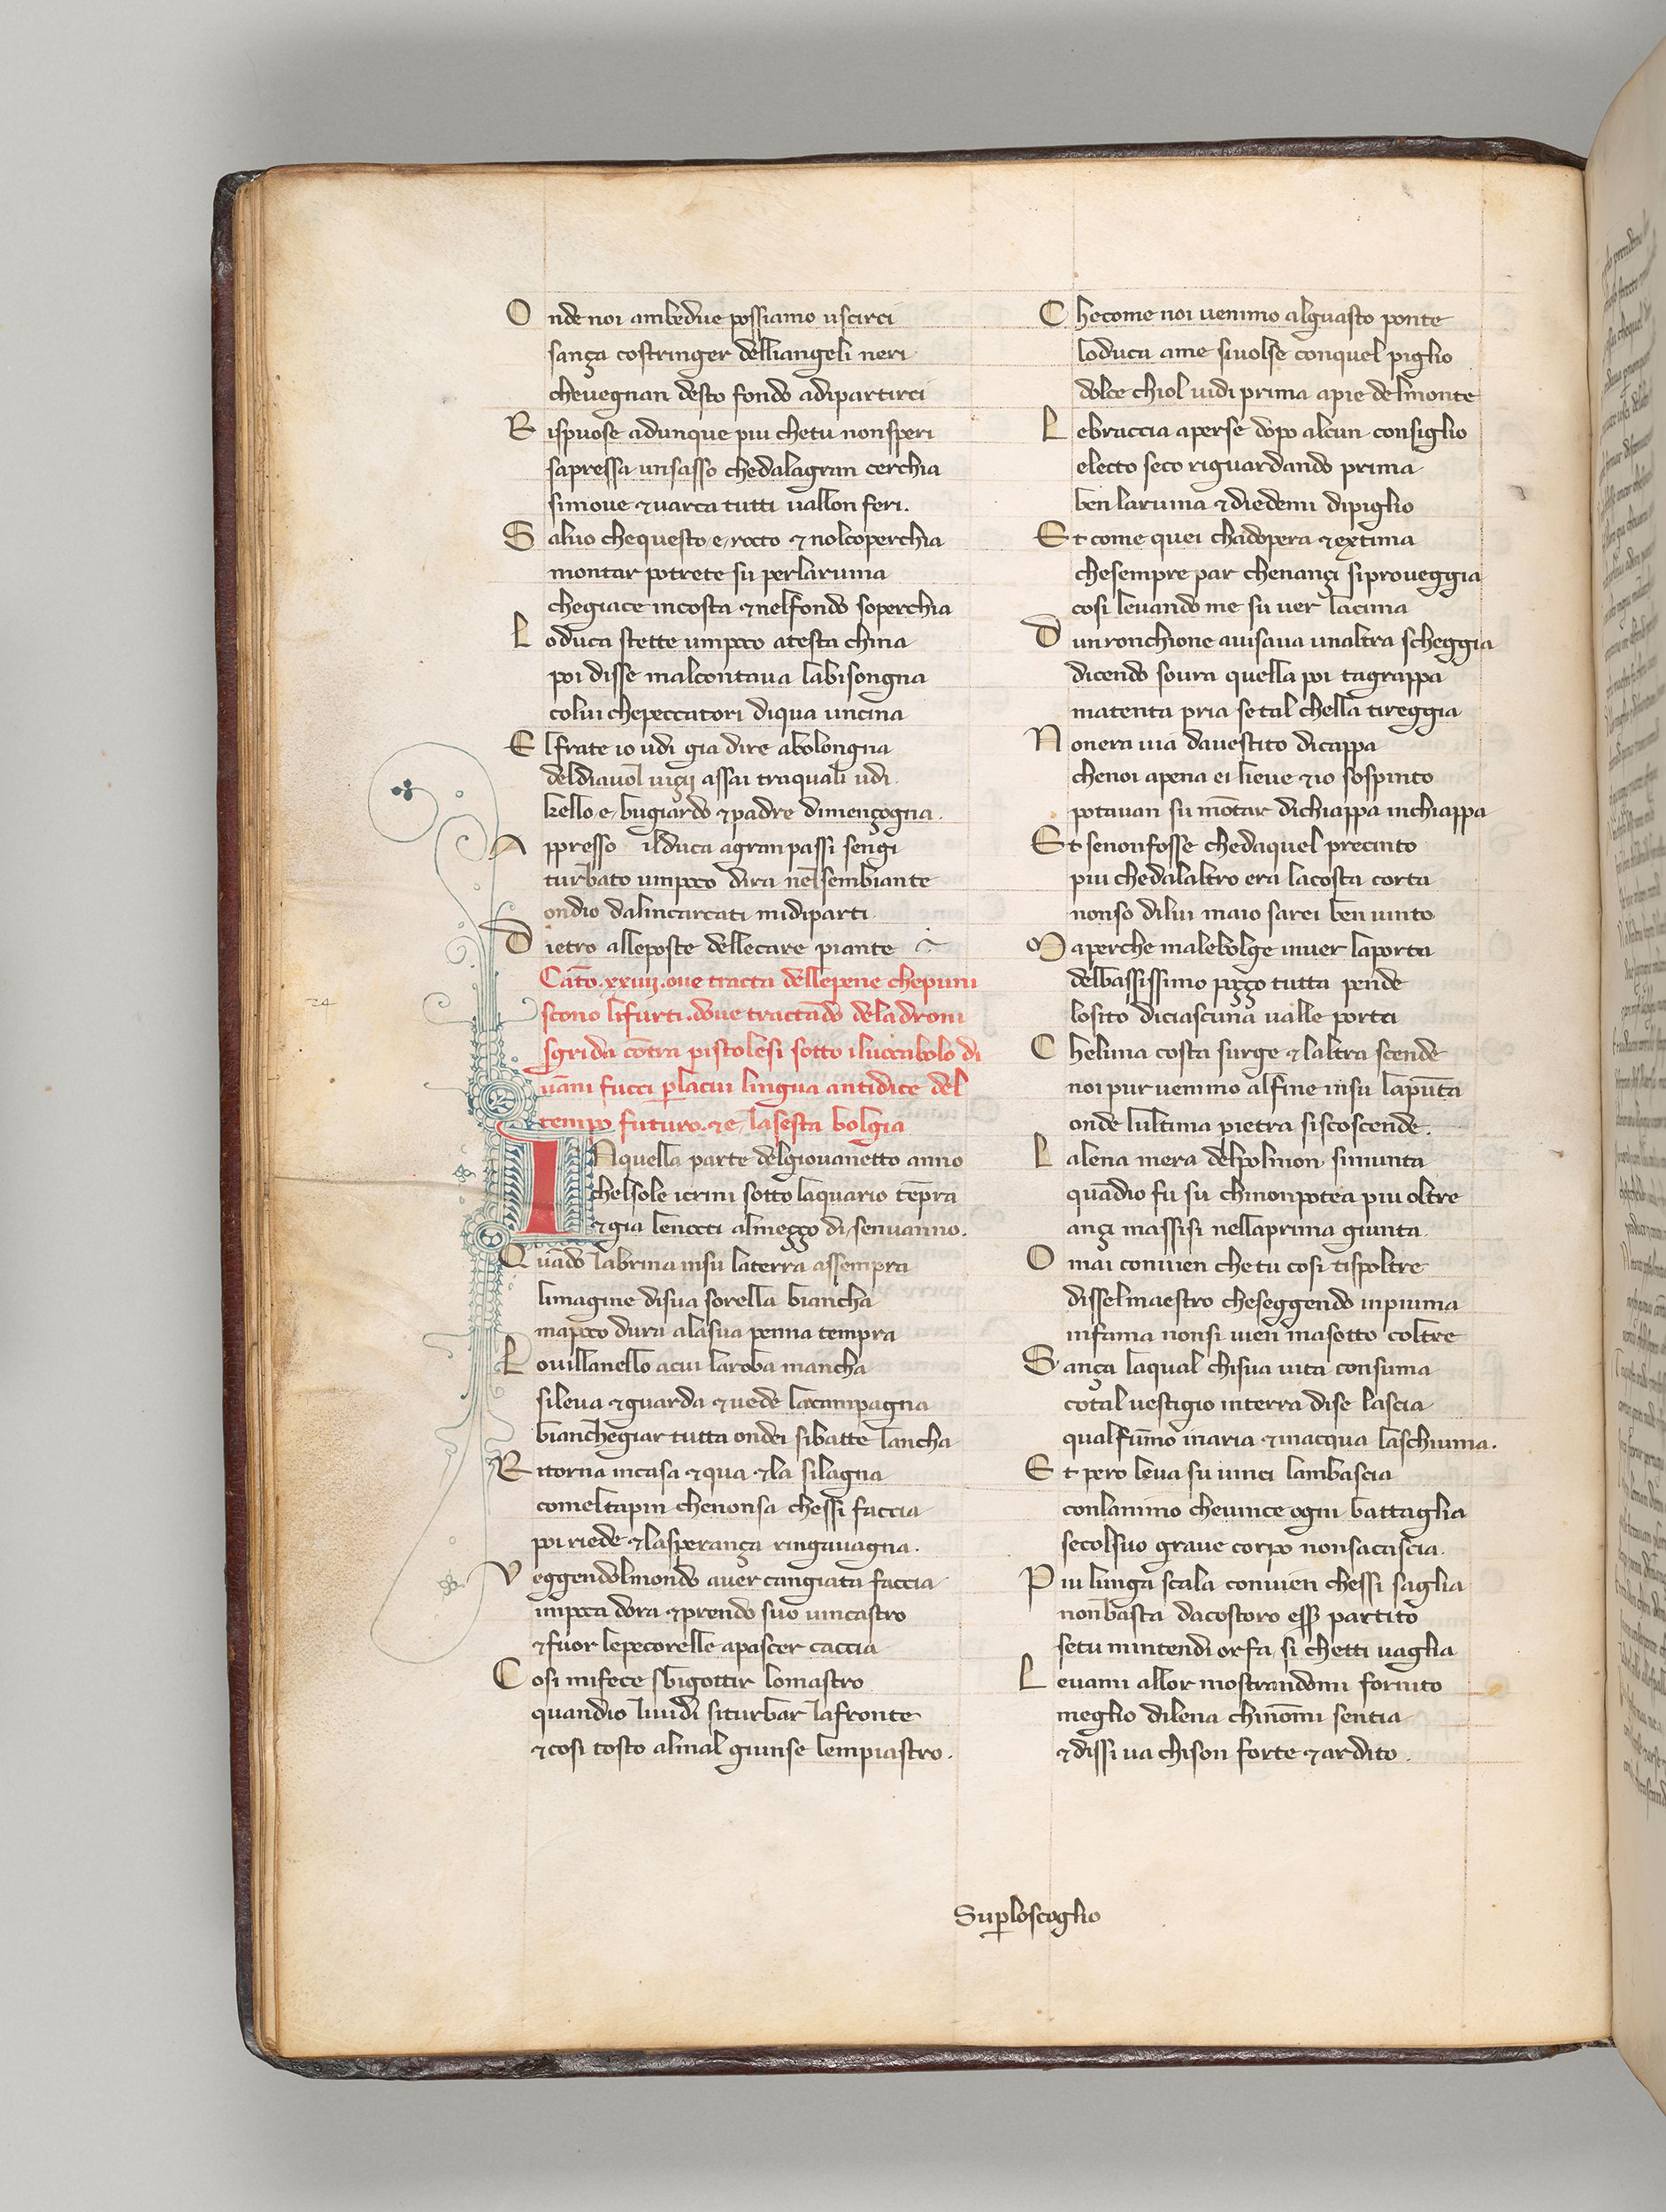 O nde noi ambedue possiamo uscirci
sança costringer delliangeli neri
cheuegnan desto fondo adipartirci
R ispuose adunque piu chetu nonsperi
sapressa unsasso chedalagran cerchia
simoue ⁊ uarca tutti uallon feri.
S aluo chequesto e rocto ⁊ nolcoperchia
montar potrete su perlaruina
chegiace incosta ⁊ nelfondo soperchia
L oduca stette umpoco atesta china
poi disse malcontaua labisongna
colui chepeccatori diqua uncina
E lfrate io udi gia dire abolongna
deldiauol uiçii assai traquali udi
kello e bugiardo ⁊ padre dimençogna.
A ppresso ilduca agranpassi sengi
turbato umpoco dira nelsembiante
ondio dalincarcati midiparti
D ietro alleposte dellecare piante
Cāto .xxiiij. oue tracta dellepene chepuni
scono lifurti. doue tractādo deladroni
sgrida cōtra pistolesi sotto iluocabolo di
uāni fucci ꝑlacui lingua antidice del
tempo futuro. ⁊ e lasesta bolgia
24
INquella parte delgiouanetto anno
chelsole icrini sotto laquario tēpra
⁊ gia lenocti almeçço di senuanno.
Q uādo labrina insu laterra assempra
limagine disua sorella biancha
mapoco dura alasua penna tempra
L ouillanello acui laroba mancha
sileua ⁊ guarda ⁊ uede lacampagna
bianchegiar tutta ondei sibatte lancha
R itorna incasa ⁊ qua ⁊ la silagna
comeltapin chenonsa chessi faccia
poi riede ⁊ lasperança ringauagna.
V eggendolmondo auer cangiata faccia
impoca dora ⁊ prendo suo uincastro
⁊ fuor lepecorelle apascer caccia
C osi mifece sbigottir lomastro
quandio liuidi siturbar lafronte
⁊ cosi tosto almal giunse lempiastro.
C hecome noi uenimo alguasto ponte
loduca ame siuolse conquel piglio
dolce chiol uidi prima apie delmonte
L ebraccia aperse dopo alcun consiglio
electo seco riguardando prima
ben laruina ⁊ diedemi dipiglio
E t come quei chadopera ⁊ extima
chesempre par chenançi siproueggia
cosi leuando me su uer lacima
D unronchione auisaua unaltra scheggia
dicendo soura quella poi tagrappa
matenta pria setal chella tireggia
N onera uia dauestito dicappa
chenoi apena ei lieue ⁊ io sospinto
potauan su mōtar dichiappa inchiappa
E t senonfosse chedaquel precinto
piu chedalaltro era lacosta corta
nonso dilui maio sarei ben uinto
M aperche malebolge inuer laporta
delbassissimo poçço tutta pende
losito diciascuna ualle porta
C heluna costa surge ⁊ laltra scende
noi pur uenimo alfine insu lapūta
onde lultima pietra siscoscende.
L alena mera delpolmon simunta
quādio fu su chinonpotea piu oltre
ançi massisi nellaprima giunta.
O mai conuien chetu cosi tispoltre
disselmaestro cheseggendo inpiuma
infama nonsi uien masotto coltre
S ança laqual chisua uita consuma
cotal uestigio interra dise lascia
qualfummo inaria ⁊ inacqua laschiuma.
E t pero leua su uinci lambascia
conlanimo cheuince ogni battaglia
secolsuo graue corpo nonsacascia.
P iu lunga scala conuien chessi saglia
nonbasta dacostoro eẜẜ partito
setu mintendi orfa si chetti uaglia
L euami allor mostrandomi fornito
meglio dilena chinōmi sentia
⁊ dissi ua chison forte ⁊ ardito.
Suꝑloscoglio